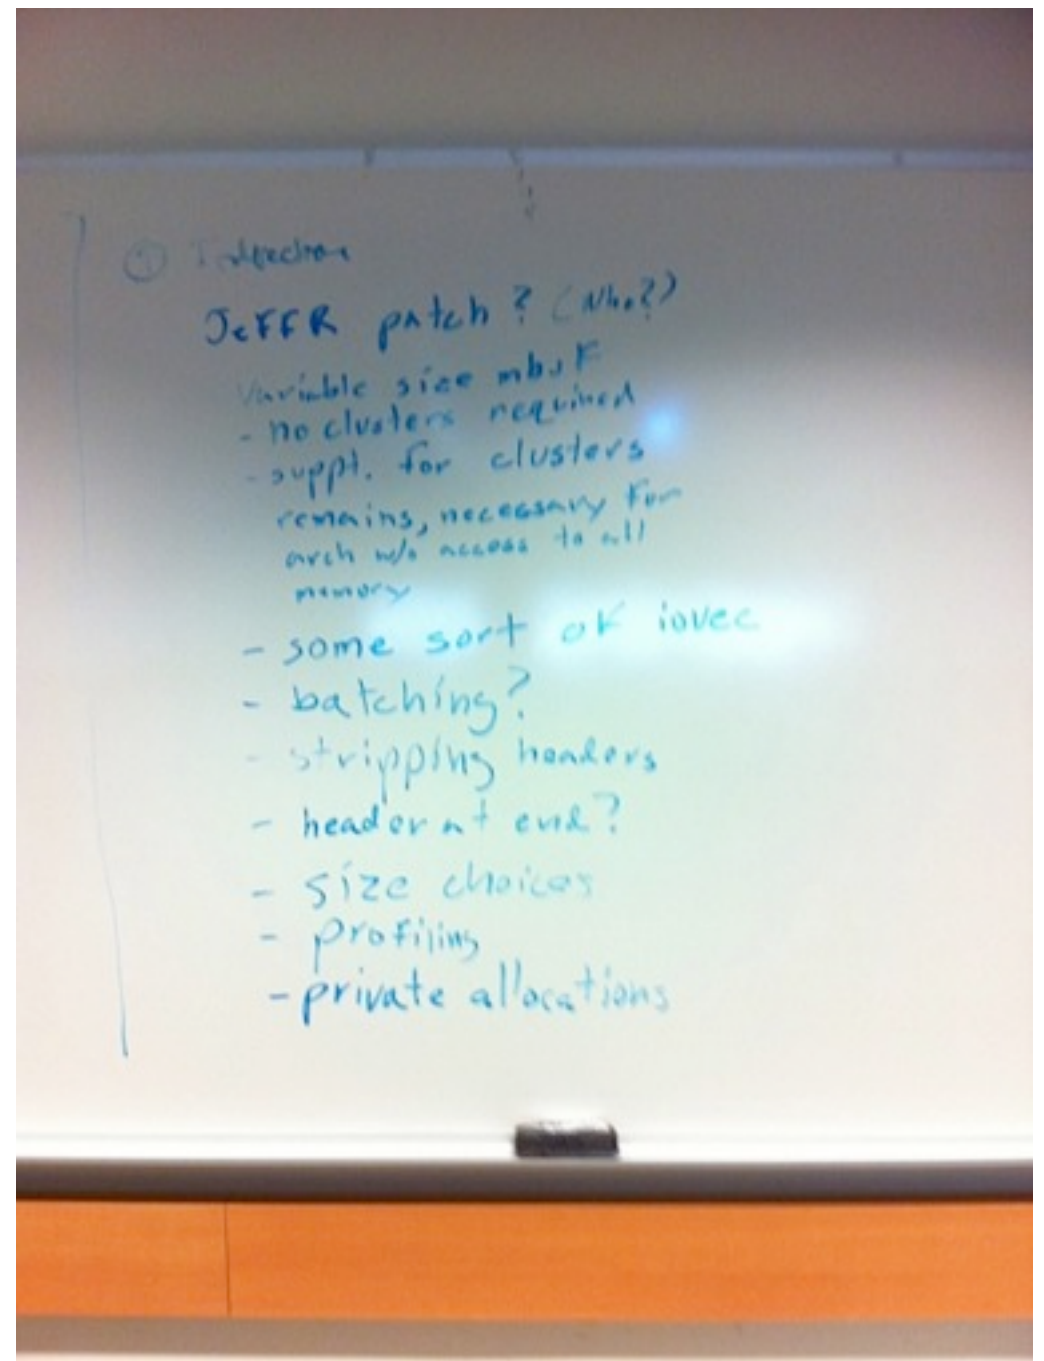 ①
JeFFR patch? (Who?)
Variable size mbuf
- no clusters required
- suppt. for clusters
remains, necessary for
arch w/o access to all
memory
- some sort of iovec
- batching?
- stripping headers
- header at end?
- size choices
- profiling
- private allocations